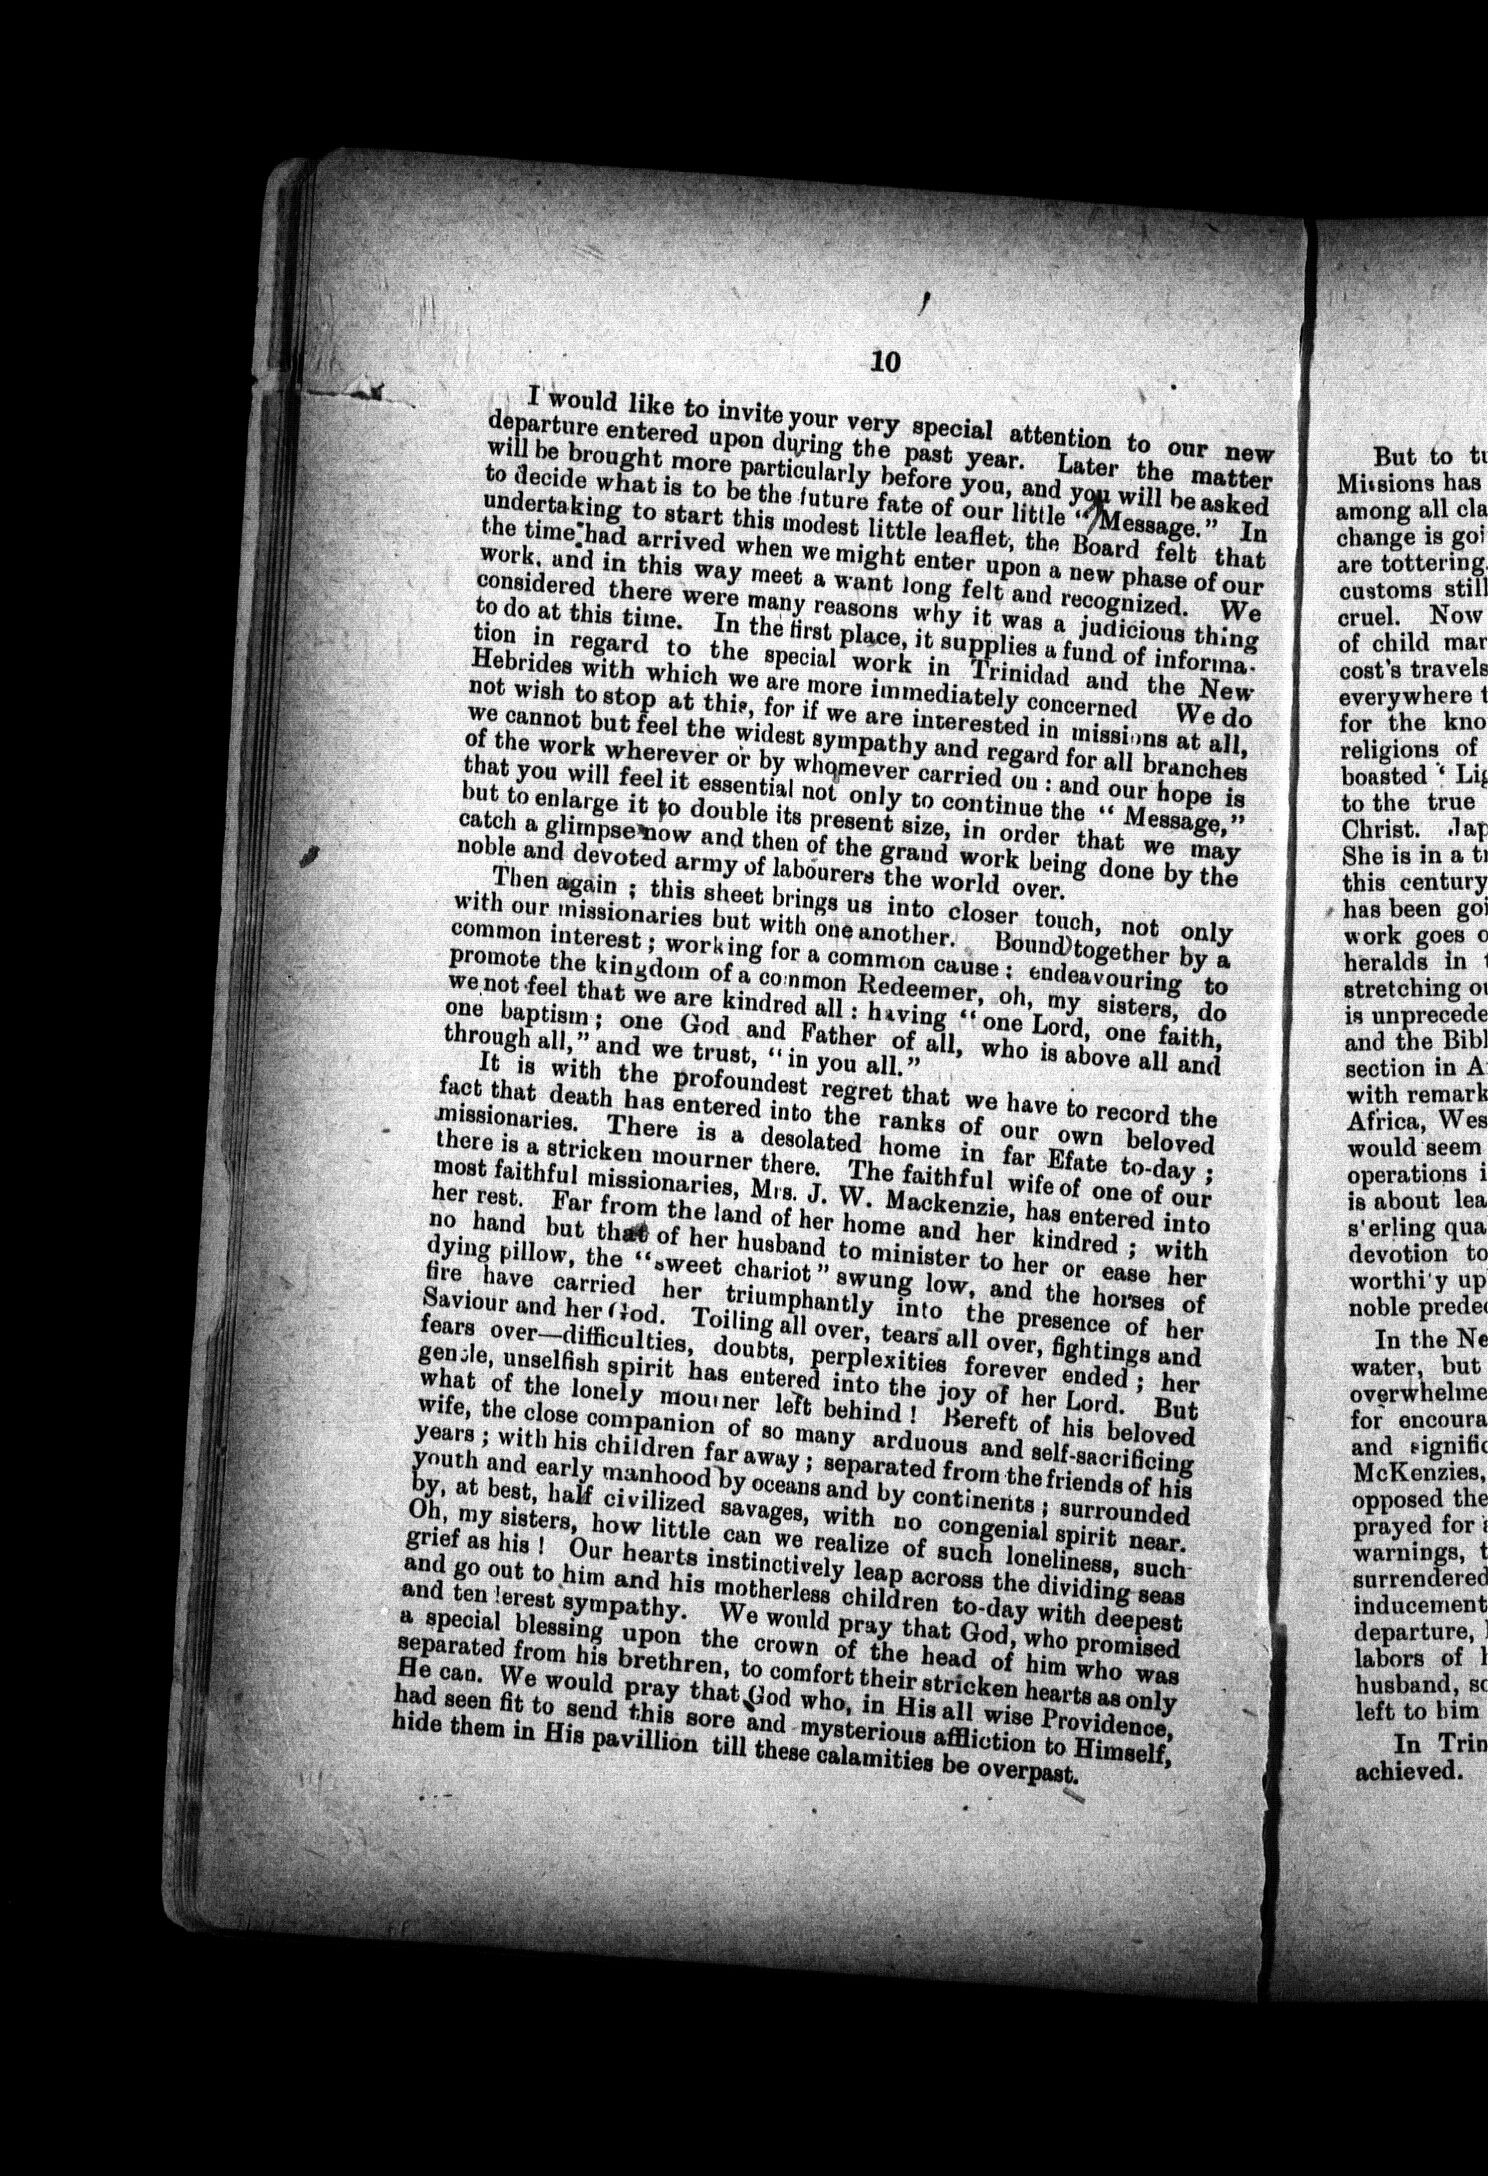 10
I would like to invite your very special attention to our new
departure entered upon during the past year. Later the matter
will be brought more particularly before you, and you will be asked
to decide what is to be the future fate of our little "Message." In
undertaking to start this modest little leaflet, the Board felt that
the time had arrived when we might enter upon a new phase of our
work, and in this way meet a want long felt and recognized. We
considered there were many reasons why it was a judicious thing
to do at this time. In the first place, it supplies a fund of informa-
tion in regard to the special work in Trinidad and the New
Hebrides with which we are more immediately concerned We do
not wish to stop at this, for if we are interested in missions at all,
we cannot but feel the widest sympathy and regard for all branches
of the work wherever or by whomever carried on : and our hope is
that you will feel it essential not only to continue the "Message,"
but to enlarge it to double its present size, in order that we may
catch a glimpse now and then of the grand work being done by the
noble and devoted army of labourers the world over.
Then again ; this sheet brings us into closer touch, not only
with our missionaries but with one another. Bound together by a
common interest ; working for a common cause ; endeavouring to
promote the kingdom of a common Redeemer, oh, my sisters, do
we not feel that we are kindred all : having "one Lord, one faith,
one baptism ; one God and Father of all, who is above all and
through all," and we trust, "in you all."
It is with the profoundest regret that we have to record the
fact that death has entered into the ranks of our own beloved
missionaries. There is a desolated home in far Efate to-day ;
there is a stricken mourner there. The faithful wife of one of our
most faithful missionaries, Mrs. J. W. Mackenzie, has entered into
her rest. Far from the land of her home and her kindred ; with
no hand but that of her husband to minister to her or ease her
dying pillow, the "sweet chariot" swung low, and the horses of
fire have carried her triumphantly into the presence of her
Saviour and her God. Toiling all over, tears all over, fightings and
fears over—difficulties, doubts, perplexities forever ended ; her
gentle, unselfish spirit has entered into the joy of her Lord. But
what of the lonely mourner left behind ! Bereft of his beloved
wife, the close companion of so many arduous and self-sacrificing
years ; with his children far away ; separated from the friends of his
youth and early manhood by oceans and by continents ; surrounded
by, at best, half civilized savages, with no congenial spirit near.
Oh, my sisters, how little can we realize of such loneliness, such
grief as his ! Our hearts instinctively leap across the dividing seas
and go out to him and his motherless children to-day with deepest
and tenderest sympathy. We would pray that God, who promised
a special blessing upon the crown of the head of him who was
separated from his brethren, to comfort their stricken hearts as only
He can. We would pray that God who, in His all wise Providence,
had seen fit to send this sore and mysterious affliction to Himself,
hide them in His pavillion till these calamities be overpast.
But to
Missions has
among all
change is
are tottering.
customs still
cruel. Now
of child
cost's travels
everywhere
for the
religions of
boasted ‘
to the true
Christ.
She is in a
this century
has been
work goes
heralds in
stretching
is
and the
section in
with
Africa,
would seem
operations
is about
sterling
devotion to
worthily
noble
In the
water, but
for
and
McKenzies,
opposed the
prayed for
warnings,
surrendered
inducement
departure,
labors of
husband,
left to him
In
achieved.